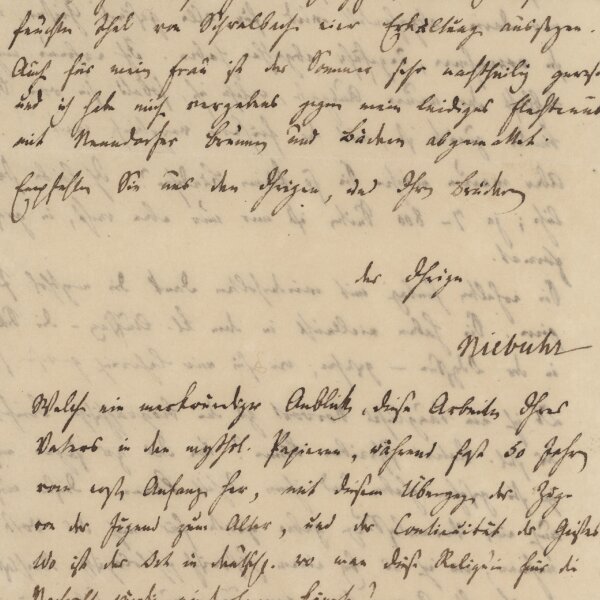 feuchten Thal von Schwalbach einer Erkältung aussetzen.
Auch für mein Frau ist der Sommer sehr nachtheilig gewes
und ich habe mich vergebens gegen mein leidiges Flechtenüb
mit Nenndorfer Brunnen und Bädern abgemattet.
Empfehlen Sie uns den Ihrigen, und Ihren Brüdern
der Ihrige
Niebuhr
Welch ein merkwürdiger Anblick, diese Arbeiten Ihres
Vaters in den Papieren, während fast 50 Jahren
vom ersten Anfang her, mit diesem Übergang der Züge
von der Jugend zum Alter, und der Continuität des Geistes
Wo ist der Ort in wo man diese Reliquien für die